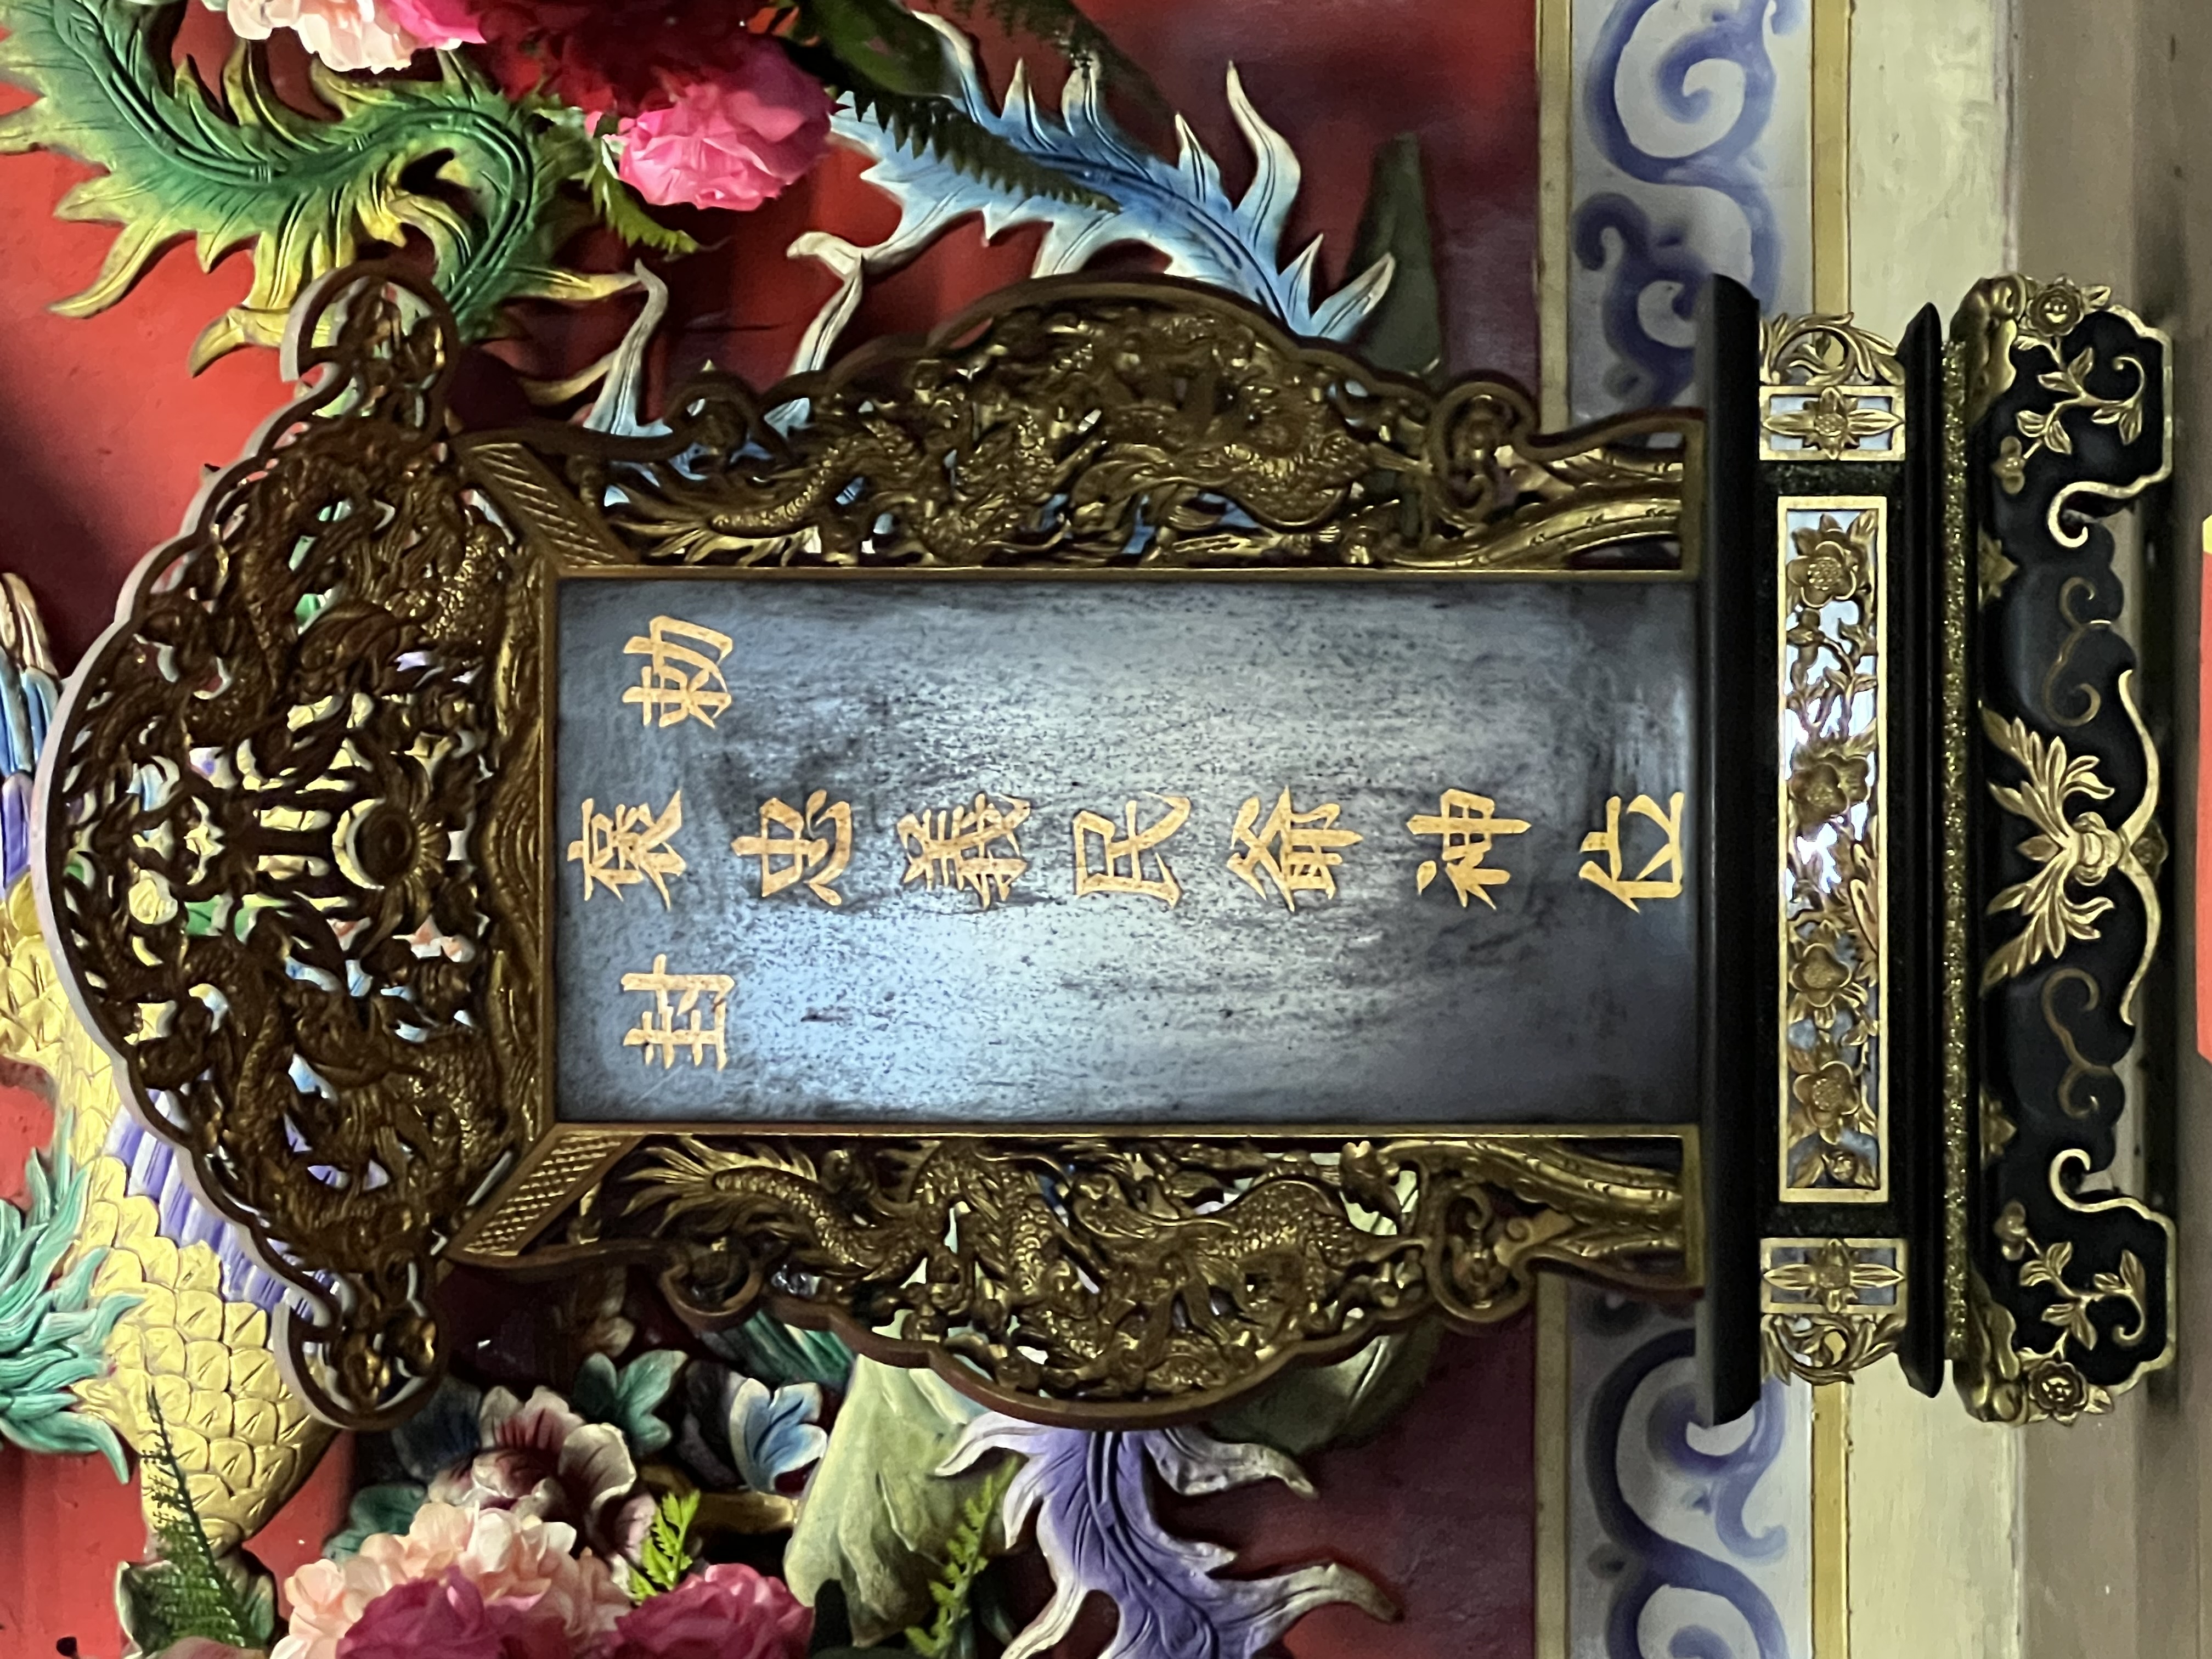 勅封
褒忠義民爺神位